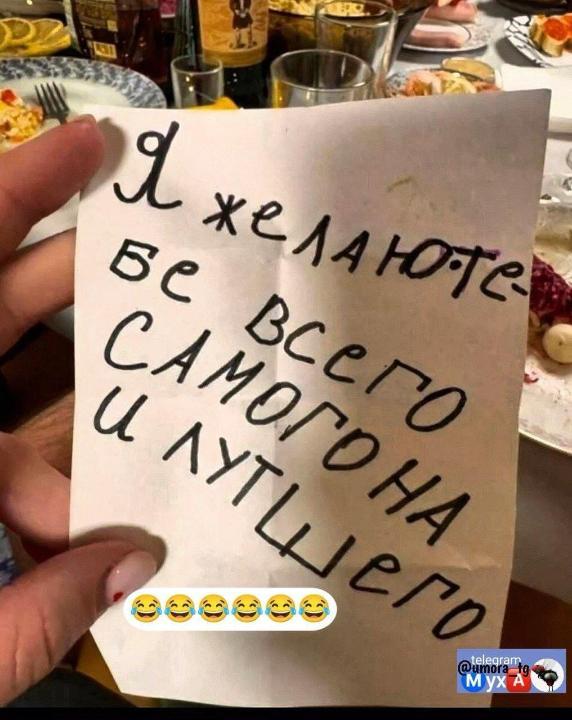 Я желаю·те-
бе всего
САМОГОНА
и лутшего
😂😂😂😂😂😂
telegram
@umora_tg
МухА